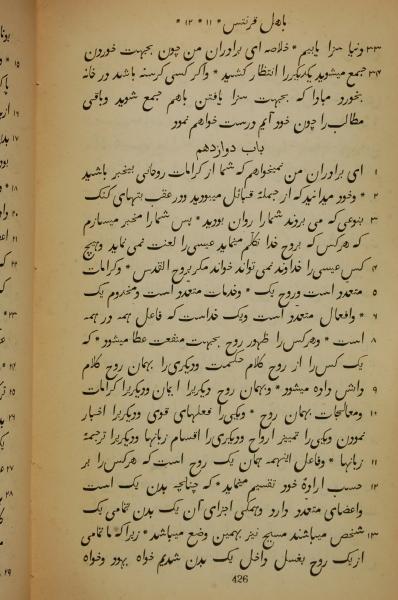 باهل قرنتس * ۱۱ * ۱۲ *
۳۳ دنیا سزا یابیم * خلاصه ای برادران من چون بجهت خوردن
۳۴ جمع میشوید یکدیگررا انتظار کشید * واگر کسی گرسنه باشد در خانه
بخورد مبادا که بجهت سزا یافتن باهم جمع شوید وباقی
مطالب را چون خود آیم درست خواهم نمود
باب دوازدهم
۱ ای برادران من نمیخواهم که شما از کرامات روحانی بیخبر باشید
۲ * وخود میدانید که از جملهٔ قبائل میبودید ودر عقب بتهای گنگ
۳ بنوعی که می بردند شمارا روان بودید * پس شمارا مخبر میسازم
که هرکس که بروح خدا تکلّم مینماید عیسی را لعنت نمی نماید وهیچ
۴ کس عیسی را خداوند نمی تواند خواند مگر بروح القدس * وکرامات
۵ متعدد است وروح یک * وخدمات متعدد است ومخدوم یک
۶ * وافعال متعدد است ویک خداست که فاعل همه در همه
۸ است * وهرکس را ظهور روح بجهت منفعت عطا میشود * که
یک کس را از روح کلام حکمت ودیگری را بهمان روح کلام
۹ دانش داده میشود * وبهمان روح دیگریرا ایمان ودیگریرا کرامات
۱۰ ومعالجات بهمان روح * ویکی را فعلهای قوی ودیگریرا اخبار
نمودن ویکی را تمییز ارواح ودیگری را اقسام زبانها ودیگریرا ترجمهٔ
۱۱ زبانها * وفاعل اینهمه همان یک روح است که هرکس را بر
۱۲ حسب ارادهٔ خود تقسیم مینماید * که چنانچه بدن یک است
واعضای متعدد دارد وهمگی اجزای آن یک بدن تمامی یک
۱۳ شخص میباشند مسیح نیز بهمین وضع میباشد * زیرا که ما تمامی
از یک روح بغسل داخل یک بدن شدیم خواه یهود وخواه
426